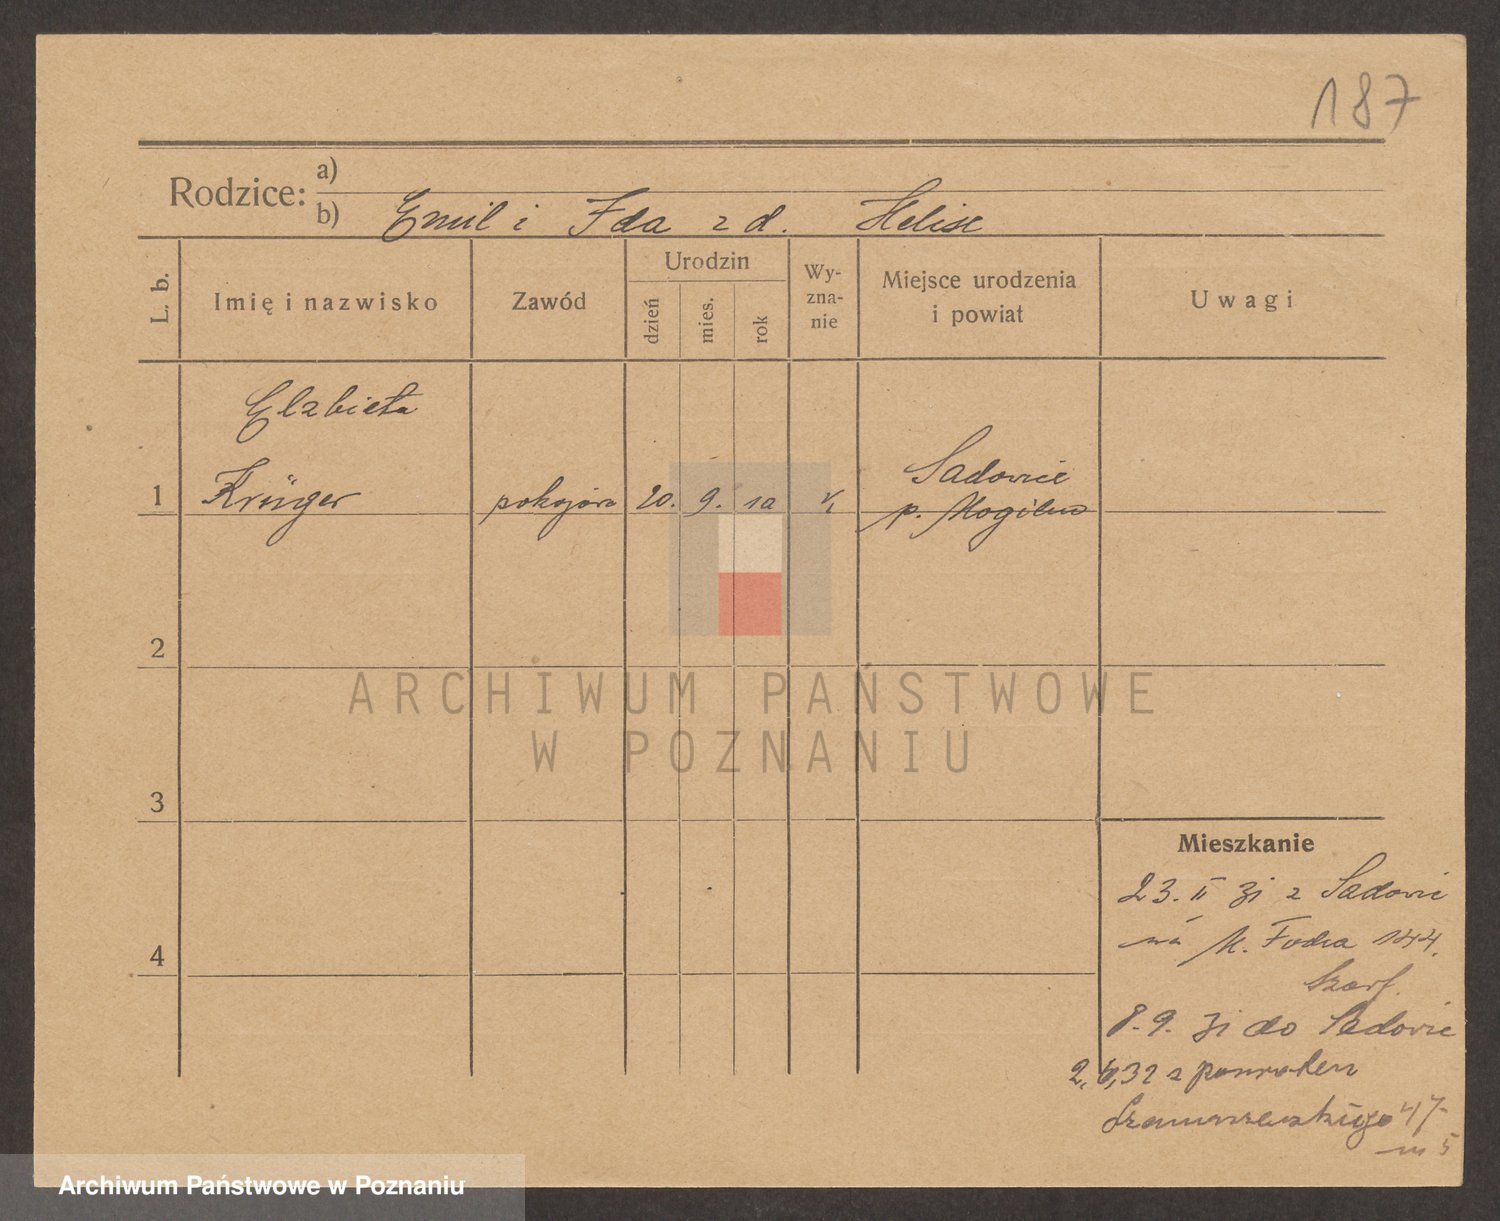 187
Rodzice: a)
b) Emil i Ida z d. Helise
L. b. Imię i nazwisko Zawód Urodzin dzień mies. rok Wy-zna-nie Miejsce urodzenia i powiat Uwagi
Elzbieta
1 Krüger pokojów 20. 9. 12 Sadowie
p. Mogilno
2
ARCHIWUM PAŃSTWOWE
W POZNANIU
3
Mieszkanie
23. II 31 z Sadowic
na M. Focha 144.
4
Szarf.
8. 9. 31 do Sadowic
2, 6, 32 z powrotem
Szamarzewskiego 47
m 5
Archiwum Państwowe w Poznaniu